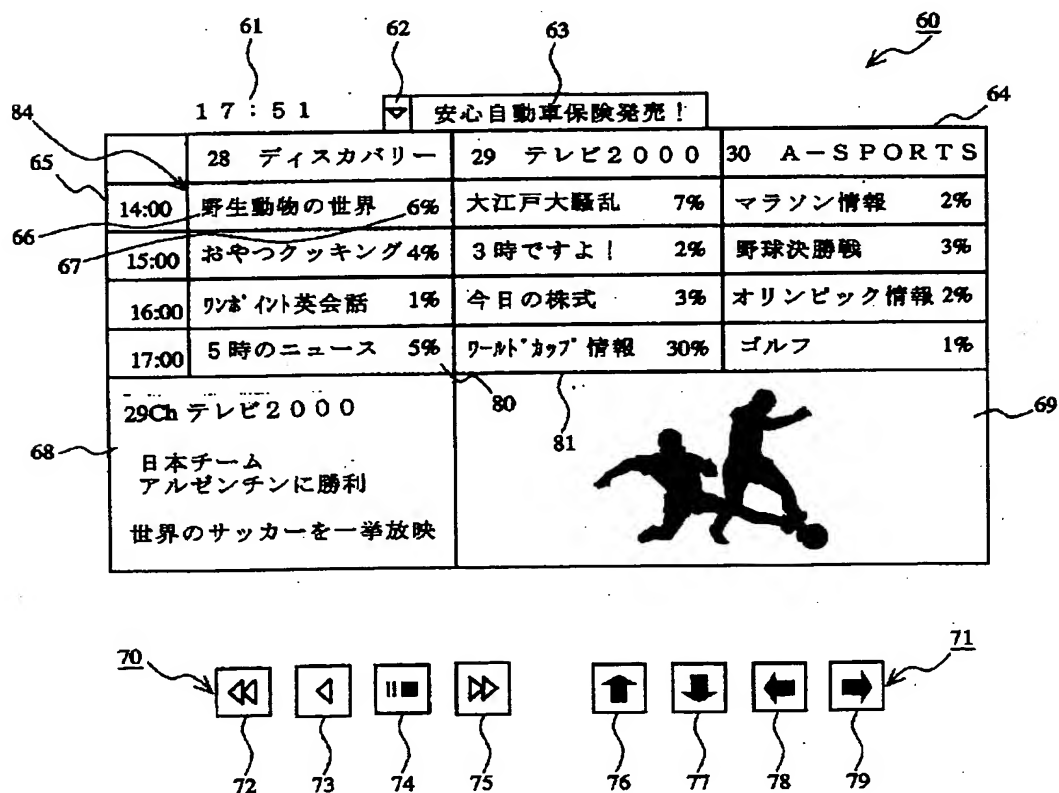 61 62 63 60
17:51 ▽ 安心自動車保険発売！ 64
84
65 28 ディスカバリー 29 テレビ２０００ 30 A－SPORTS
14:00 野生動物の世界 6% 大江戸大騒乱 7% マラソン情報 2%
66
67 15:00 おやつクッキング 4% ３時ですよ！ 2% 野球決勝戦 3%
16:00 ﾜﾝﾎﾟｲﾝﾄ英会話 1% 今日の株式 3% オリンピック情報 2%
17:00 ５時のニュース 5% ﾜｰﾙﾄﾞｶｯﾌﾟ情報 30% ゴルフ 1%
80 81 69
29Ch テレビ２０００
68
日本チーム
アルゼンチンに勝利
世界のサッカーを一挙放映
70 71
72 73 74 75 76 77 78 79